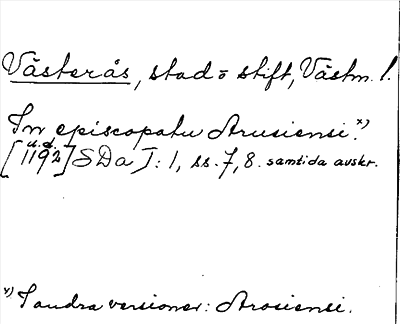 Västerås, stad o stift, Västm. l.
In episcopatu Arusiensi.x)
[u.d. 1192] SDa I: 1, ss. 7, 8. samtida avskr.
x) I andra versioner: Arosiensi.